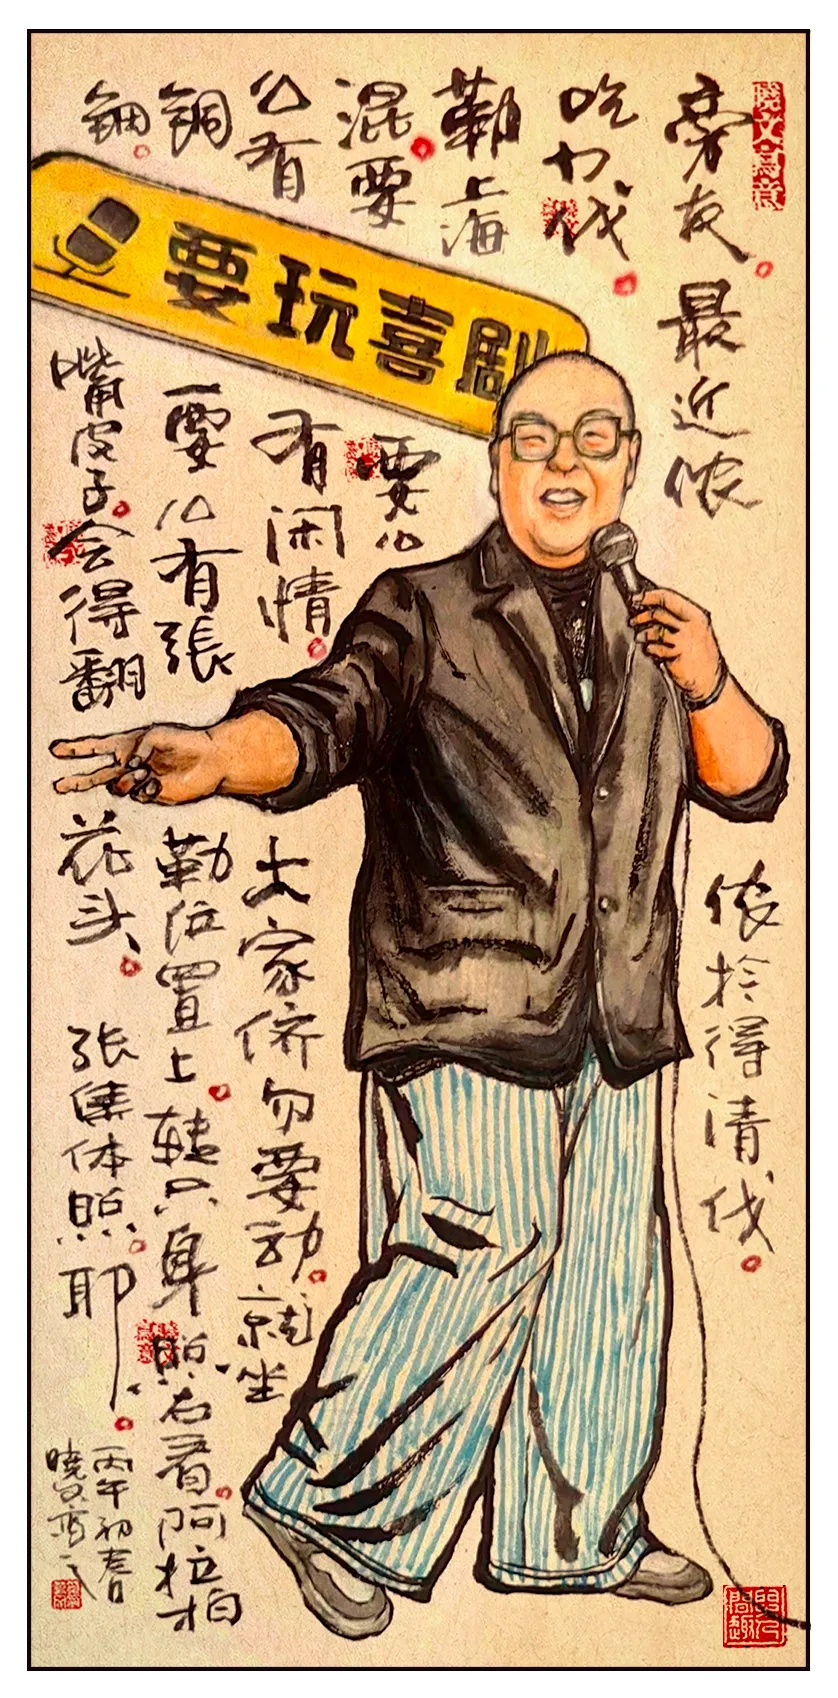 曉文寫意
旁友最近侬
吃力伐
勒上海
混要
么有
銅
鈿
要玩喜剧
要么
有闲情
一要么有張
嘴皮子会得翻
花头
侬拎得清伐
大家侪勿要动就坐
勒位置上轉只身照右看阿拉拍
张集体照耶
丙午初春
曉文寫之